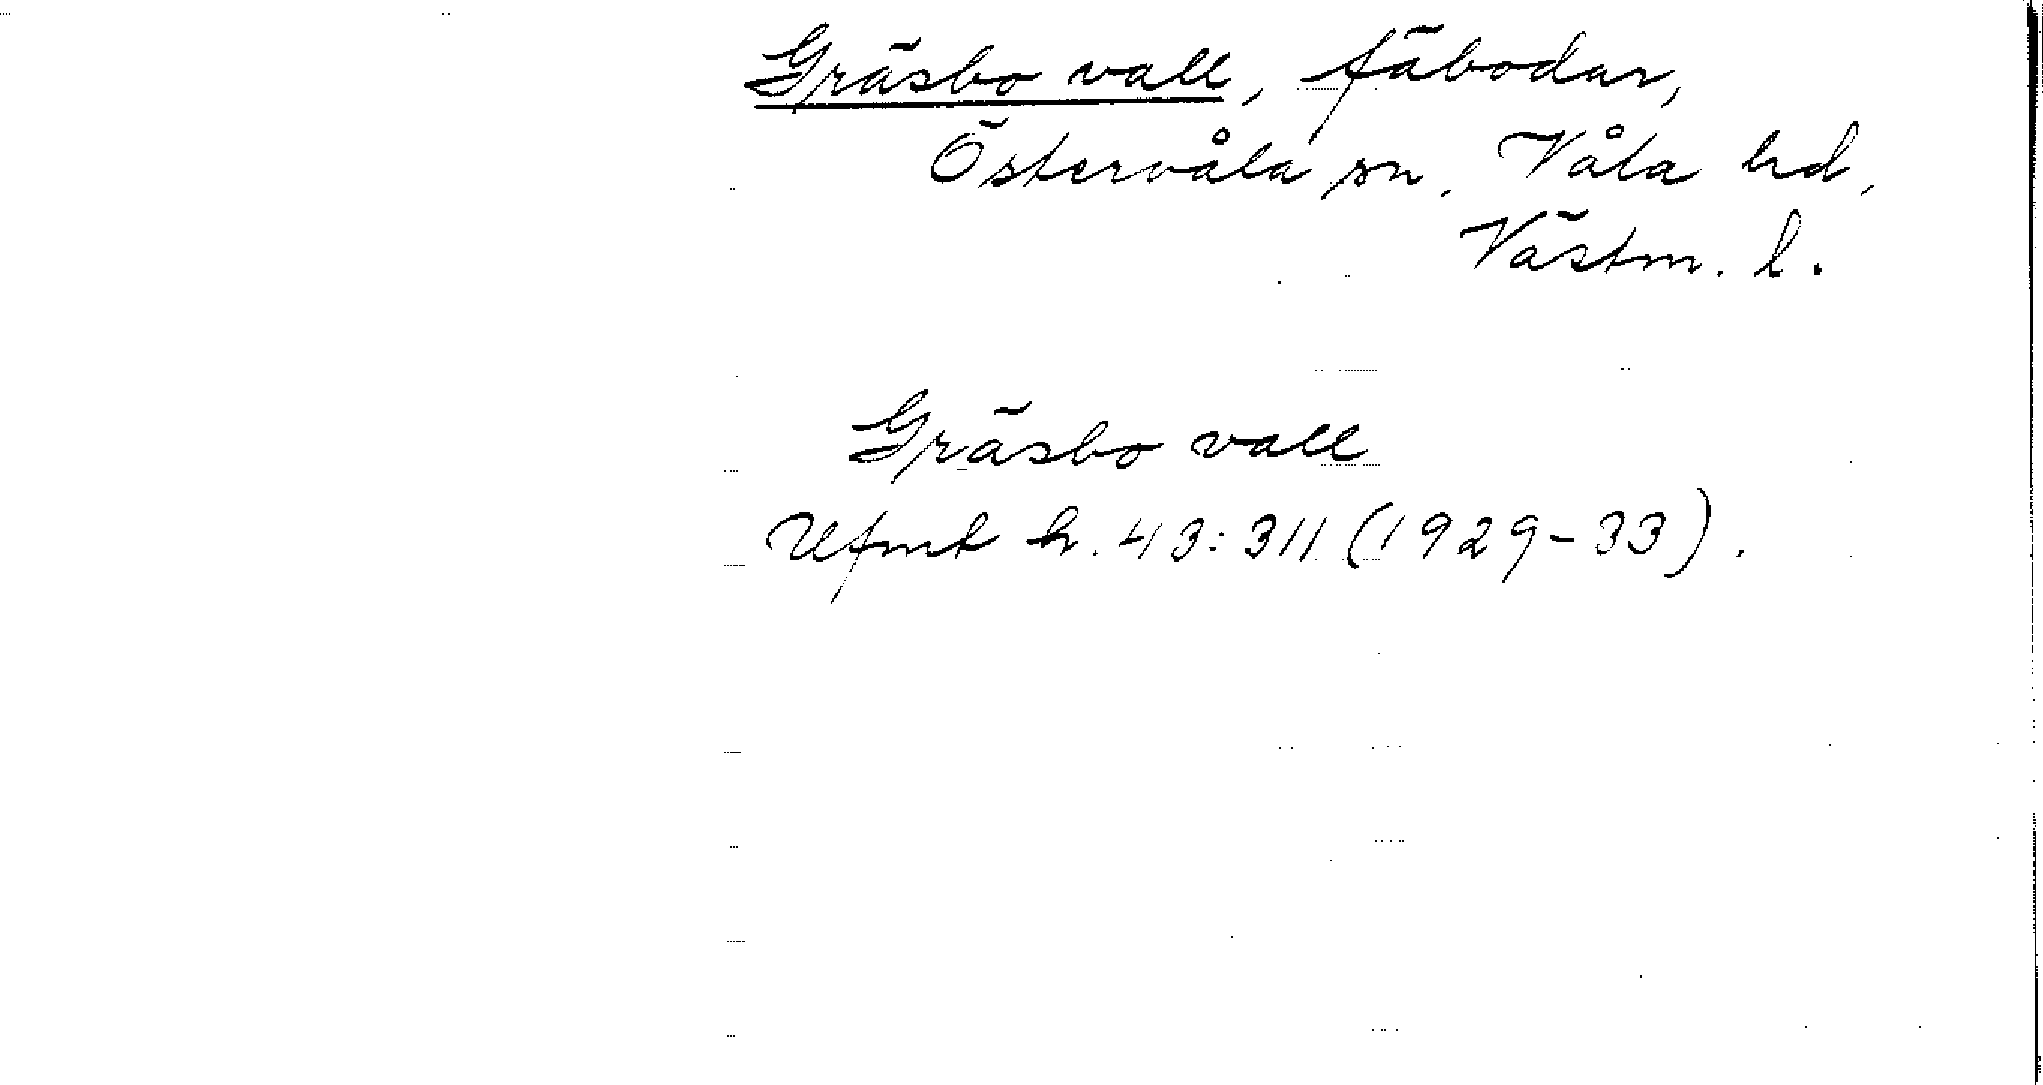 Gräsbo vall, fäbodar,
Östervåla sn, Våla hd,
Västm. l.
Gräsbo vall
Ufmt h. 43:311 (1929-33).